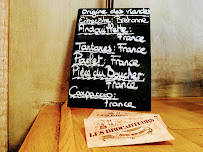 Origine des viandes
Entrecôte: Bretonne
Andouillette:
France
Tartares: France
Poulet: France
Pièce du Boucher
France
Carpaccio:
France
LES BROCANTEURS